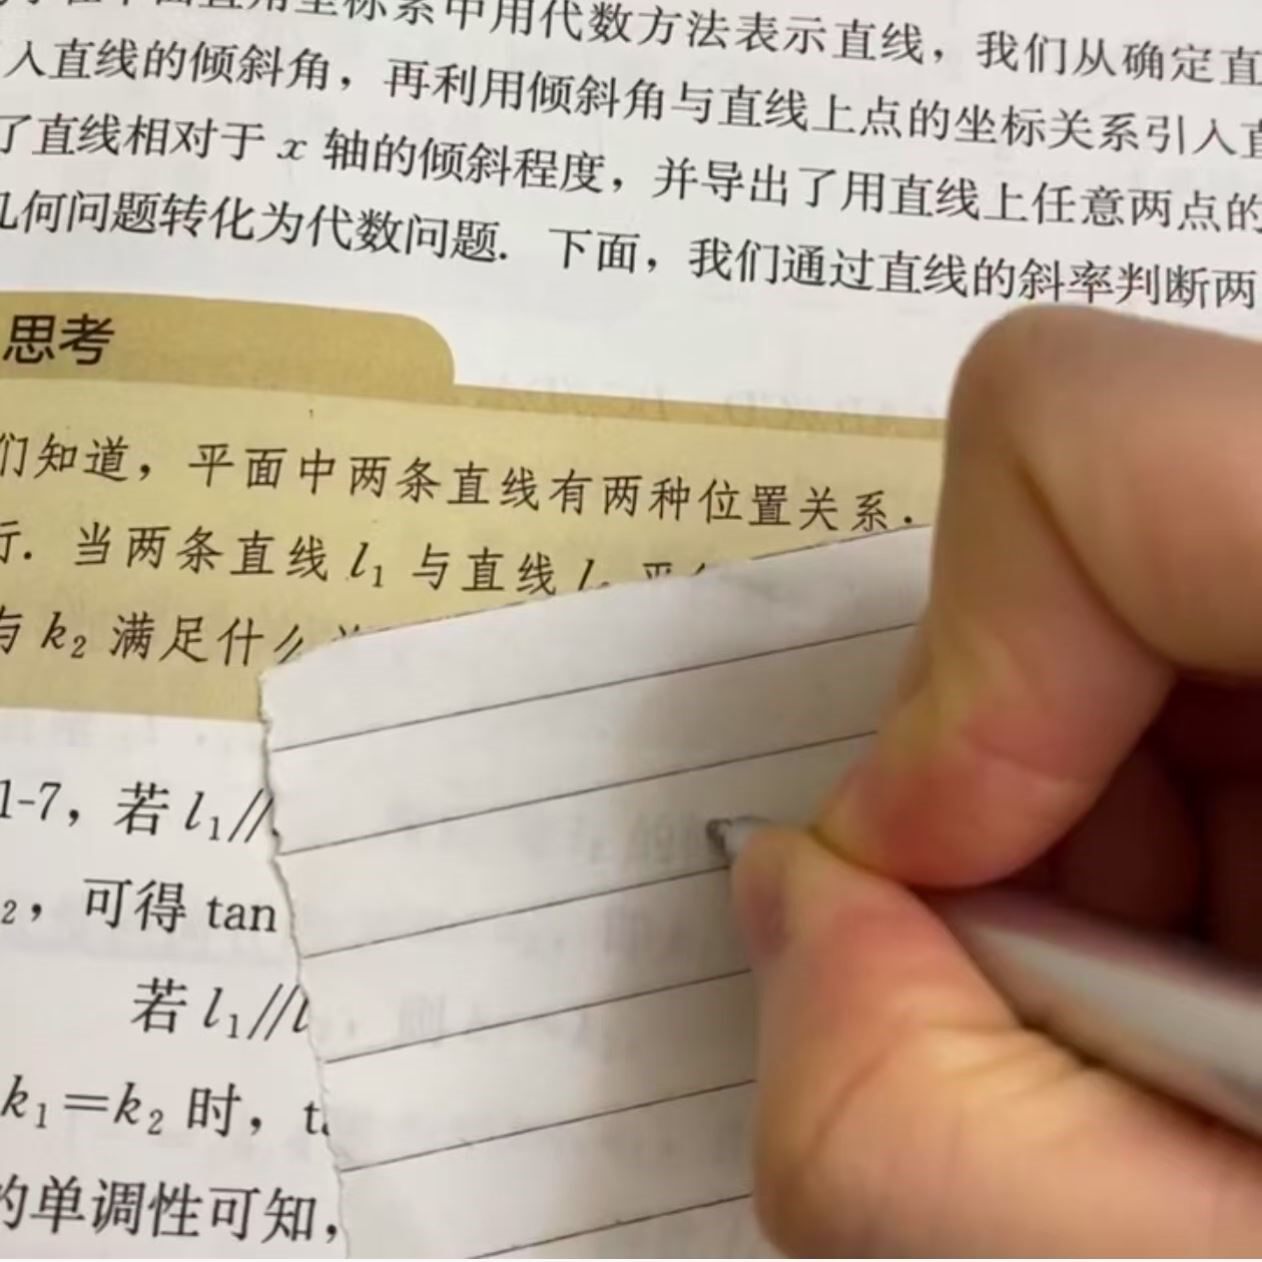 在平面直角坐标系中用代数方法表示直线，我们从确定直
入直线的倾斜角，再利用倾斜角与直线上点的坐标关系引入直
了直线相对于 x 轴的倾斜程度，并导出了用直线上任意两点的
几何问题转化为代数问题．下面，我们通过直线的斜率判断两
思考
们知道，平面中两条直线有两种位置关系．
行．当两条直线 l₁ 与直线 l
与 k₂ 满足什么
1-7，若 l₁//
₂，可得 tan
若 l₁//l
k₁=k₂ 时，t
的单调性可知，